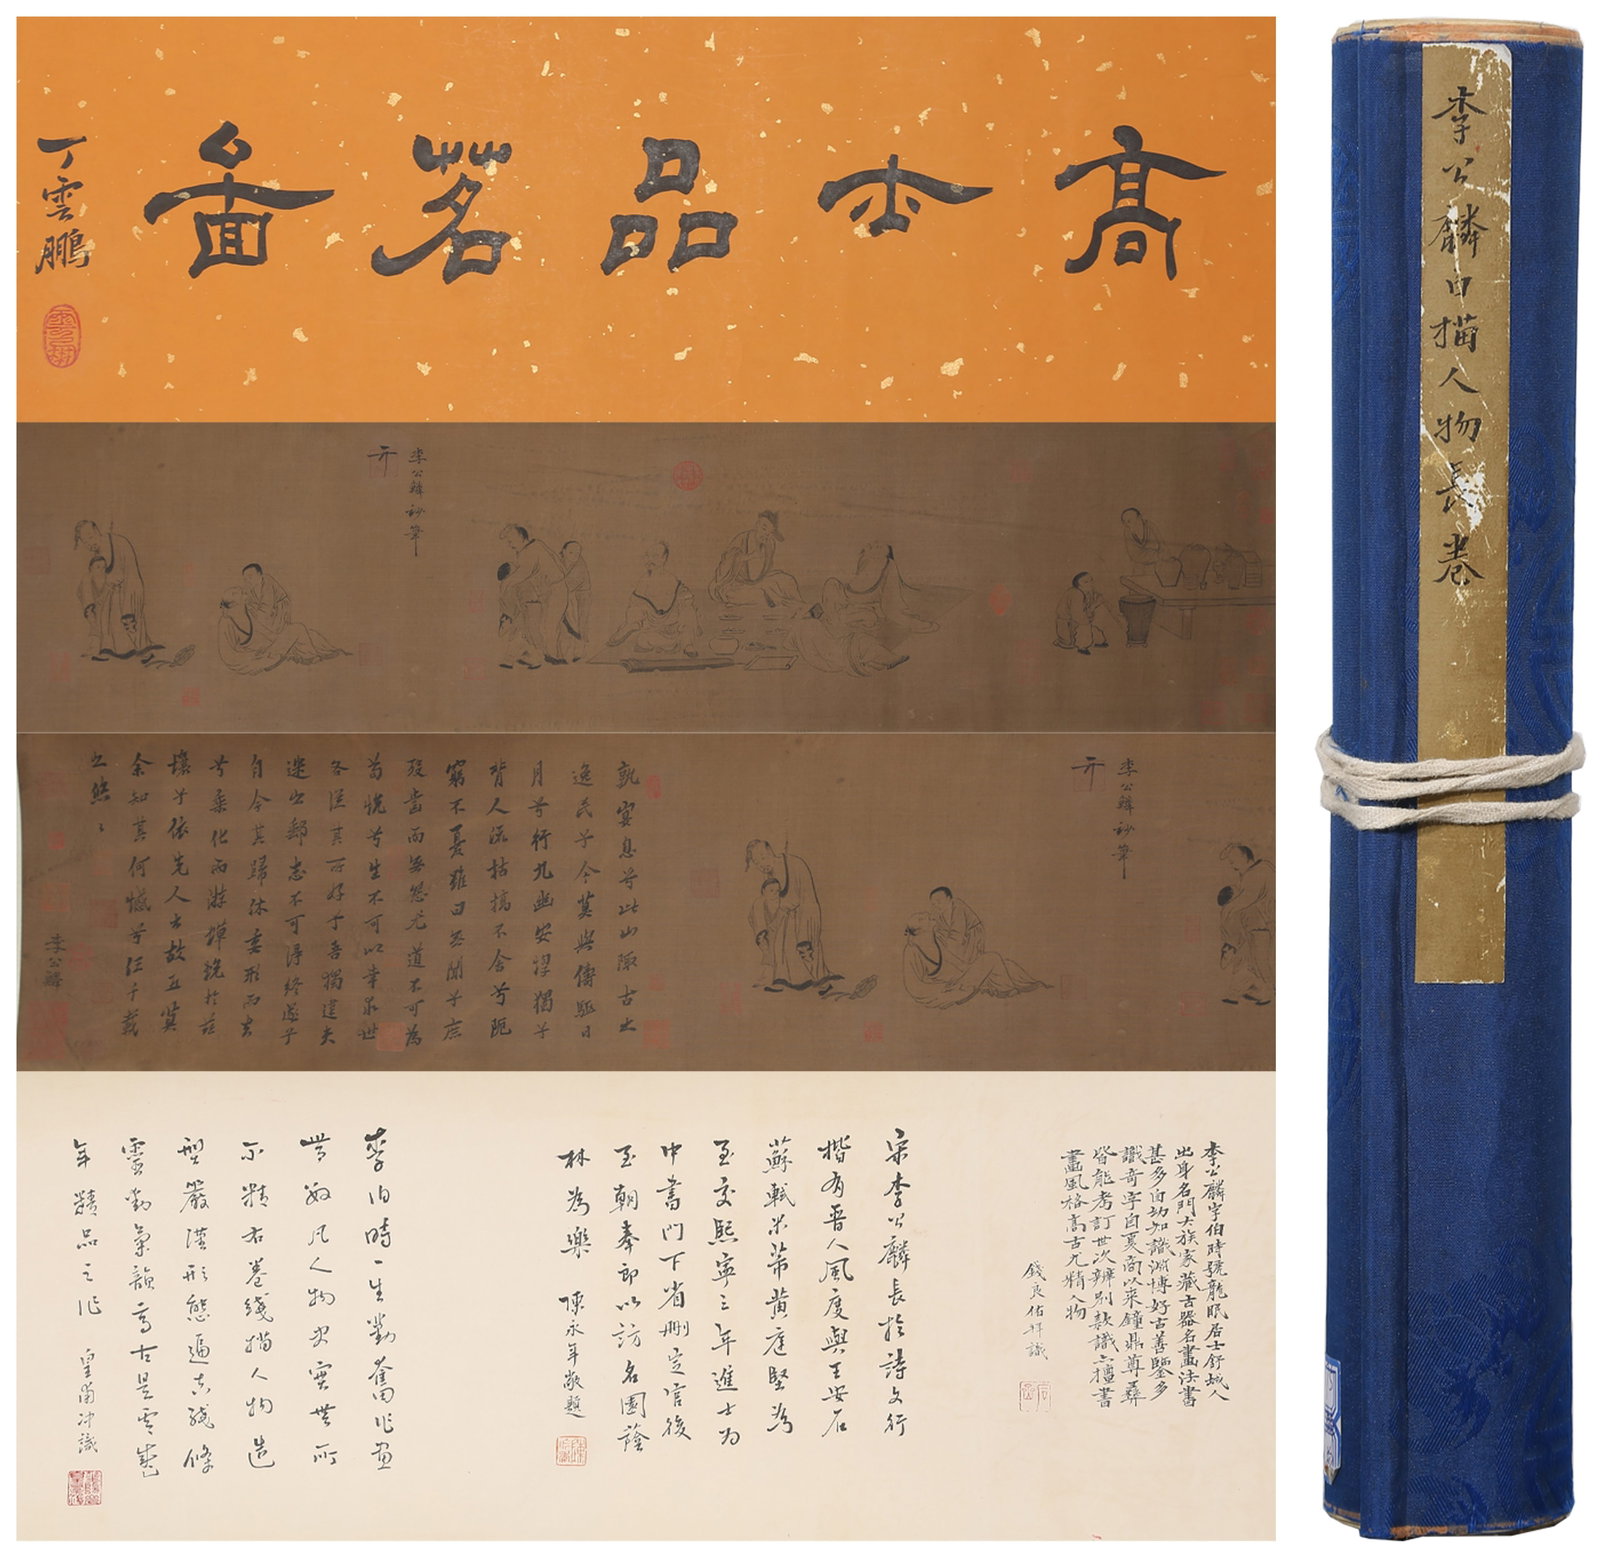 高士品茗圖
丁雲鵬
李公麟白描人物長卷
李公麟秘筆
李公麟秘筆
孰宴息兮此山陬古之
逸民兮今莫與儔駈日
月兮行九幽安得獨兮
背人流枯槁不舍兮
窮不憂雖曰無聞兮庶
歿齒而無怨尤道不可為
兮生不可以幸求世
各從其所好兮吾獨違夫
迷之郵志不可得終遊兮
自今其歸休委形而去
兮乘化而遊
壤兮依先人之故丘冀
余知其何憾兮任千載
之悠悠
李公麟
李公麟字伯時號龍眠居士舒城人
出身名門大族家藏古器名畫法書
甚多自幼知識淵博好古善鑒多
識奇字自夏商以來鐘鼎尊彝
皆能考訂世次辨別款識亦擅書
畫風格高古尤精人物
錢良佑拜識
宋李公麟長於詩文行
楷有晉人風度與王安石
蘇軾米芾黃庭堅為
至交熙寧三年進士為
中書門下省刪定官後
至朝奉郎以訪名園蔭
林為樂
陳永年敬題
李伯時一生勤奮作畫
無數凡人物史實無所
不精右卷綫描人物造
型嚴謹形態逼真綫條
靈動氣韻高古是
年精品之作
皇甫沖識